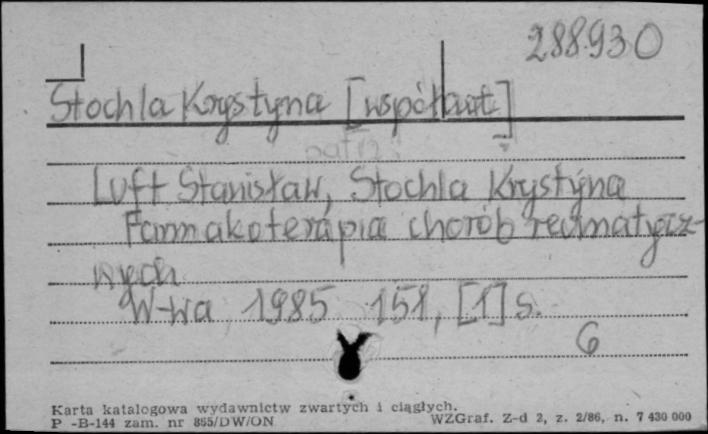 288930
Stochla Krystyna [współaut.]
patrz:
Luft Stanisław, Stochla Krystyna
Farmakoterapia chorób reumatycz-
nych
W-wa 1985 151, [1] s.
6
Karta katalogowa wydawnictw zwartych i ciągłych.
P -B-144 zam. nr 855/DW/ON WZGraf. Z-d 2, z. 2/86, n. 7 430 000